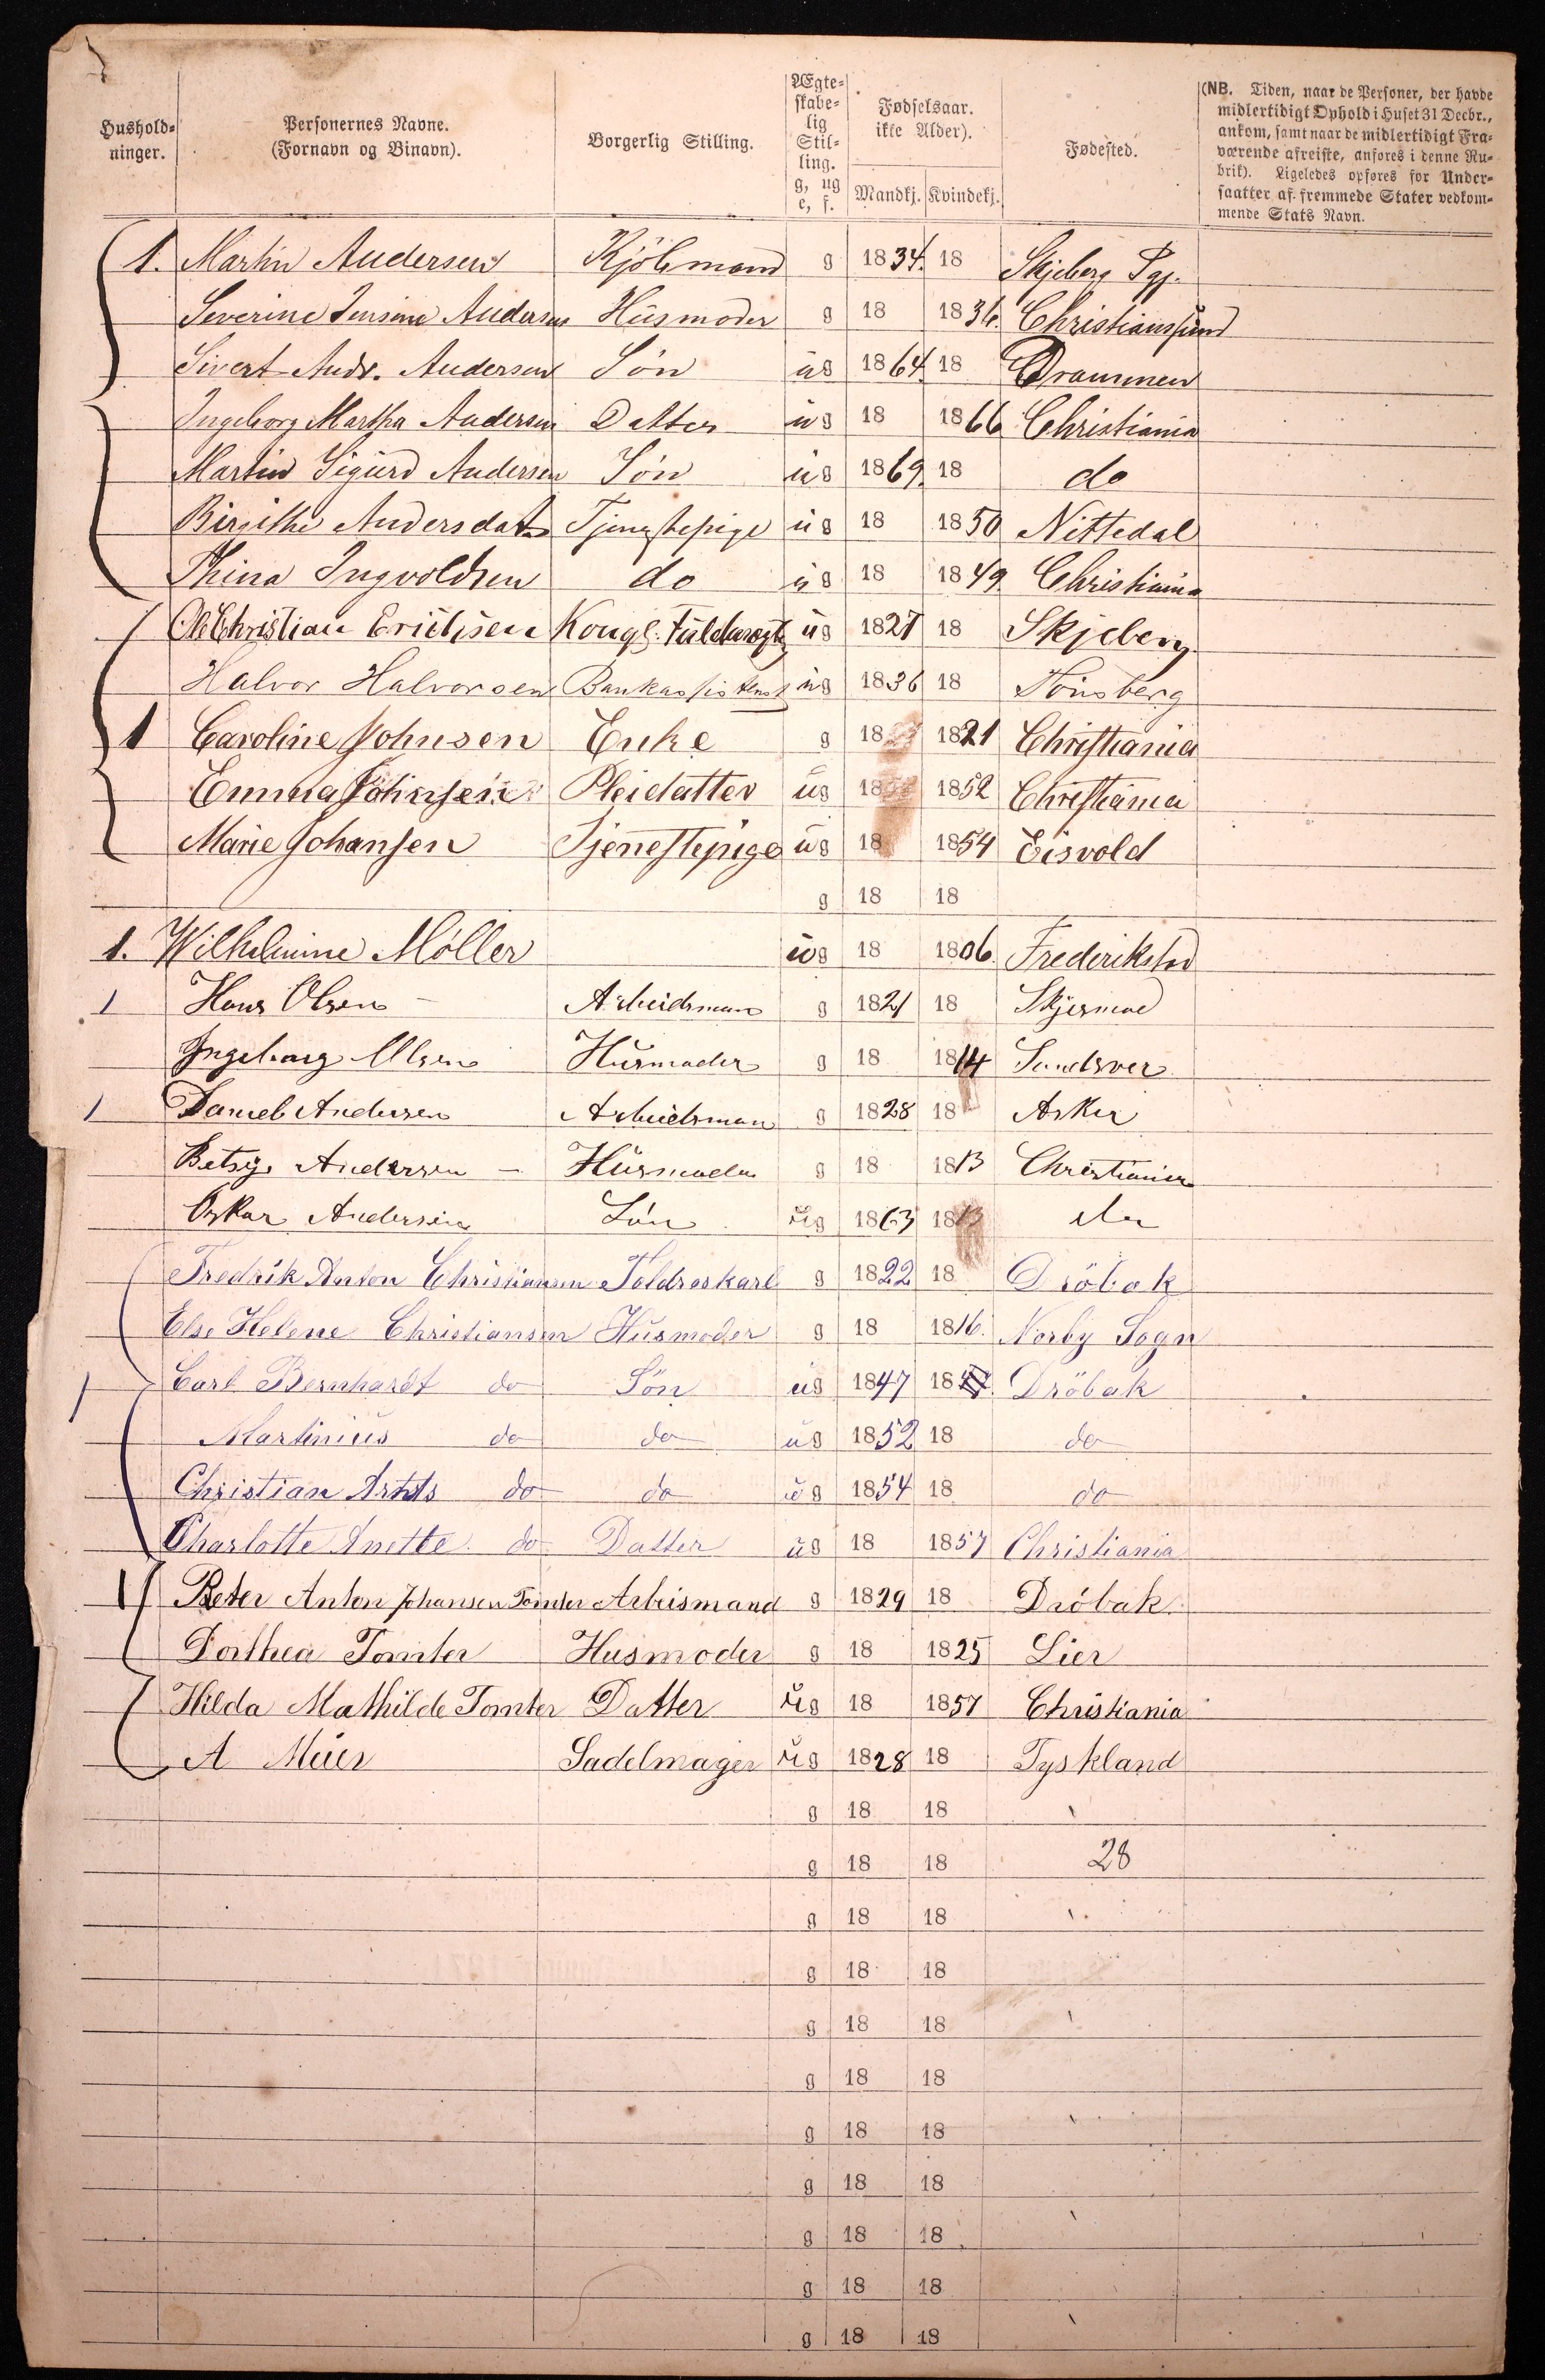 Hushold-
ninger.
Personernes Navne.
(Fornavn og Binavn).
Borgerlig Stilling.
Ægte-
skabe-
lig
Stil-
ling.
g, ug
e, f.
Fødselsaar.
ikke Alder).
Mandkj. Kvindekj.
Fødested.
(NB. Tiden, naar de Personer, der havde
midlertidigt Ophold i Huset 31 Decbr.,
ankom, samt naar de midlertidigt Fra-
værende afreiste, anføres i denne Ru-
brik). Ligeledes opføres for Under-
saatter af fremmede Stater vedkom-
mende Stats Navn.
1. Martin Andersen Kjölmand g 1834. 18 Skjeberg Pgj.
Severine Jensine Andersen Husmoder g 18 1836. Christianssund
Sivert Andr. Andersen Sön ug 1864. 18 Drammen
Ingeborg Martha Andersen Datter ug 18 1866 Christiania
Martin Sigurd Andersen Sön ug 1869. 18 do
Birgithe Andersdatr Tjenestepige ug 18 1850 Nittedal
Thina Ingvoldsen do ug 18 1849. Christiania
Ole Christian Erichsen Kongl. ug 1827 18 Skjeberg
Halvor Halvorsen Bankassistent ug 1836 18 Tönsberg
1 Caroline Johnsen Enke g 18 1821 Christiania
Emma Johnsen Pleidatter ug 18 1852 Christiania
Marie Johansen Tjenestepige ug 18 1854 Eisvold
g 18 18
1. Wilhelmine Möller ug 18 1806. Frederikstad
1 Hans Olsen Arbeidsman g 1821 18
Ingeborg Olsen Husmoder g 18 1814
1 Daniel Andersen Arbeidsman g 1828 18 Asker
Betsy Andersen Husmoder g 18 1813 Christiania
Oskar Andersen Sön ug 1863 18 do
Fredrik Anton Christiansen Toldroskarl g 1822 18 Dröbak
Else Helene Christiansen Husmoder g 18 1816. Norby Sogn
1 Carl Bernhardt do Sön ug 1847 18 Dröbak
Martinius do do ug 1852 18 do
Christian do do ug 1854 18 do
Charlotte Anette do Datter ug 18 1857 Christiania
1 Peter Anton Johansen Tomter Arbeismand g 1829 18 Dröbak
Dorthea Tomter Husmoder g 18 1825 Lier
Hilda Mathilde Tomter Datter ug 18 1857 Christiania
A Meier Sadelmager ug 1828 18 Tyskland
g 18 18
g 18 18 28
g 18 18
g 18 18
g 18 18
g 18 18
g 18 18
g 18 18
g 18 18
g 18 18
g 18 18